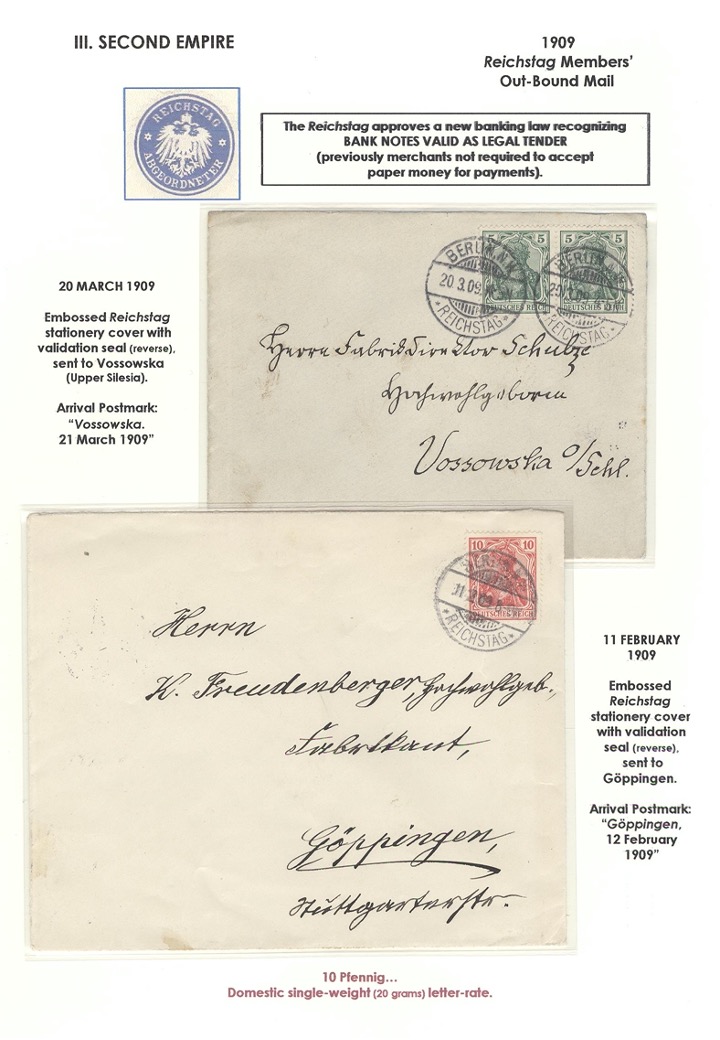 III. SECOND EMPIRE
1909
Reichstag Members'
Out-Bound Mail
REICHSTAG
ABGEORDNETER
The Reichstag approves a new banking law recognizing
BANK NOTES VALID AS LEGAL TENDER
(previously merchants not required to accept
paper money for payments).
20 MARCH 1909
Embossed Reichstag
stationery cover with
validation seal (reverse),
sent to Vossowska
(Upper Silesia).
Arrival Postmark:
"Vossowska.
21 March 1909"
5 5
DEUTSCHES REICH
5 5
DEUTSCHES REICH
BERLIN.N.W.
20 3.09
*REICHSTAG*
BERLIN
REICHSTAG
Herrn Fabrikdirektor Schulze
Hochwohlgeboren
Vossowska O/Schl.
10 10
DEUTSCHES REICH
BERLIN
11 09
*REICHSTAG*
Herrn
K. Freudenberger, Hochwohlgeb.,
Fabrikant,
Göppingen,
Stuttgarterstr.
11 FEBRUARY
1909
Embossed
Reichstag
stationery cover
with validation
seal (reverse),
sent to
Göppingen.
Arrival Postmark:
"Göppingen,
12 February
1909"
10 Pfennig...
Domestic single-weight (20 grams) letter-rate.